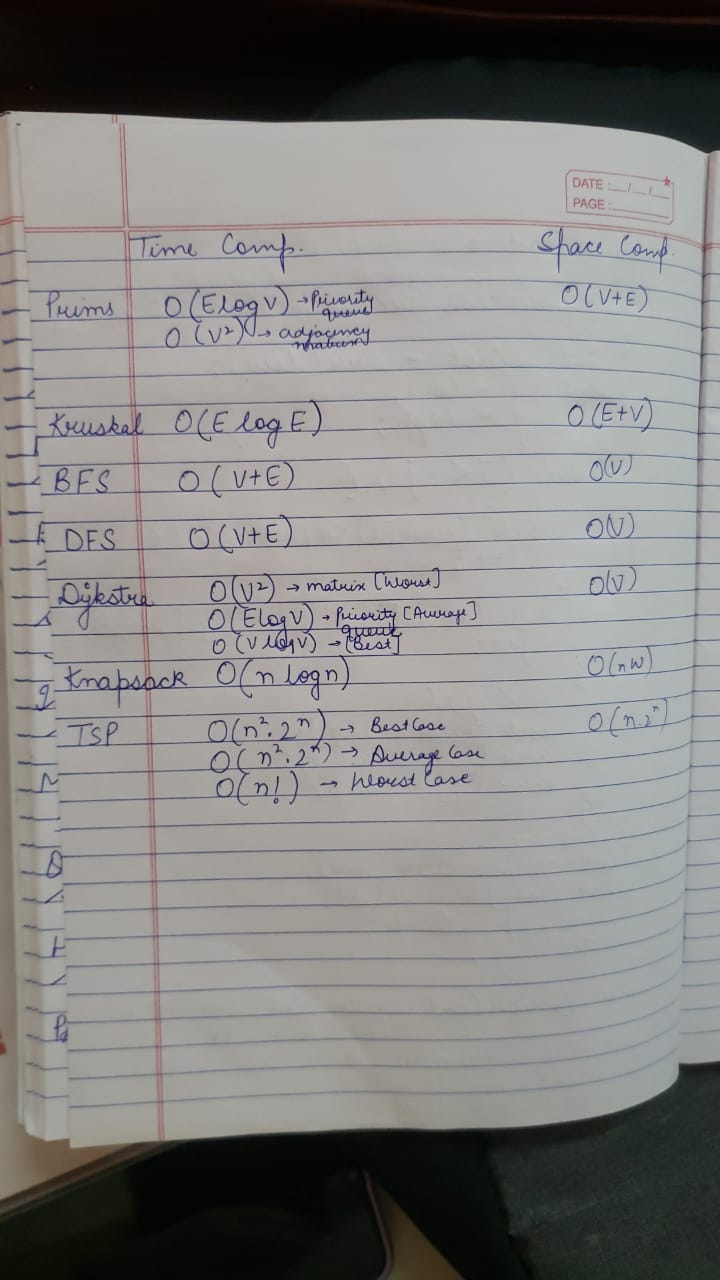 DATE :__/__/__
PAGE :______
Time Comp. Space Comp.
Prims O(E log V) → Priority queue O(V+E)
O(V²) → adjacency
Kruskal O(E log E) O(E+V)
BFS O(V+E) O(V)
DFS O(V+E) O(V)
Dijkstra O(V²) → matrix [Worst] O(V)
O(E log V) → Priority queue [Average]
O(V log V) → [Best]
Knapsack O(n log n) O(nW)
TSP O(n².2ⁿ) → Best Case O(n.2ⁿ)
O(n².2ⁿ) → Average Case
O(n!) → Worst Case